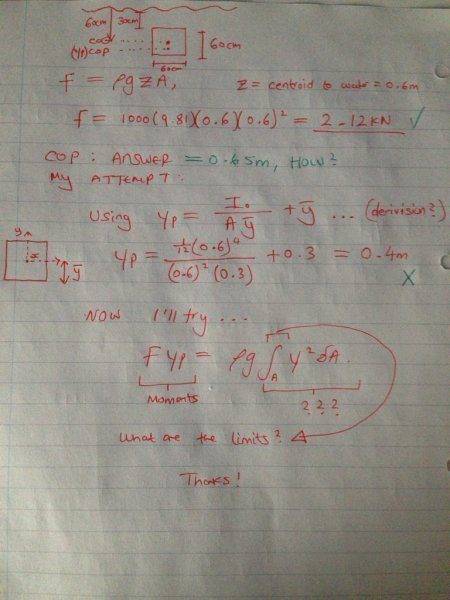 60cm 30cm
COG
(yp) COP
60cm
60cm
f = ρgzA, z = centroid to water = 0.6m
f = 1000(9.81)(0.6)(0.6)² = 2-12KN ✓
COP: ANSWER = 0.65m, HOW?
MY ATTEMPT:
Using yp = I₀/(A ȳ) + ȳ ... (derivision?)
y
x
ȳ
yp = (1/12(0.6)⁴)/((0.6)²(0.3)) + 0.3 = 0.4m
X
NOW I'll try ...
F yp = ρg ∫_A y² δA.
Moments
? ? ?
What are the limits?
Thanks!